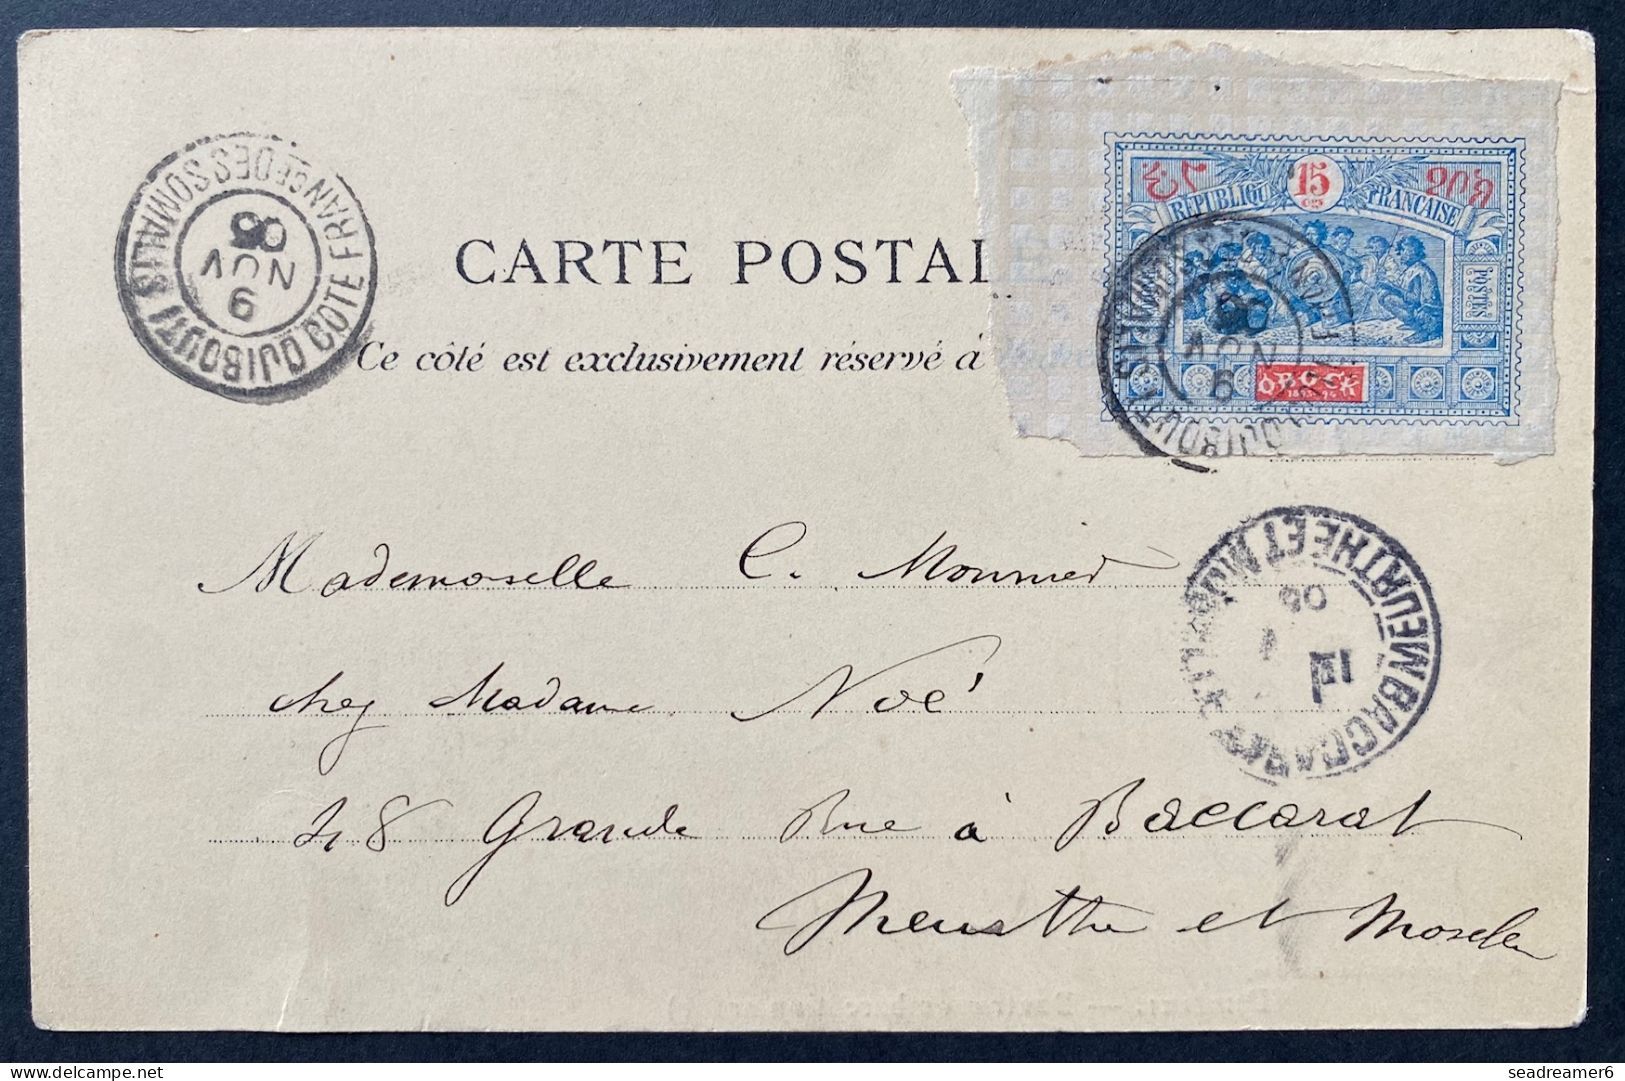 CARTE POSTAL
Ce côté est exclusivement réservé à
RÉPUBLIQU 15 FRANÇAISE
POSTES
OBOCK
1893-94
DJIBOUTI COTE FRANCSE DES SOMALIS
6
NOV
05
6
NOV
05
BACCARAT MEURTHE ET MOSELLE
05
Mademoiselle C. Monnier
chez Madame Noé
48 Grande Rue à Baccarat
Meurthe et Moselle
delcampe.net
seadreamer6